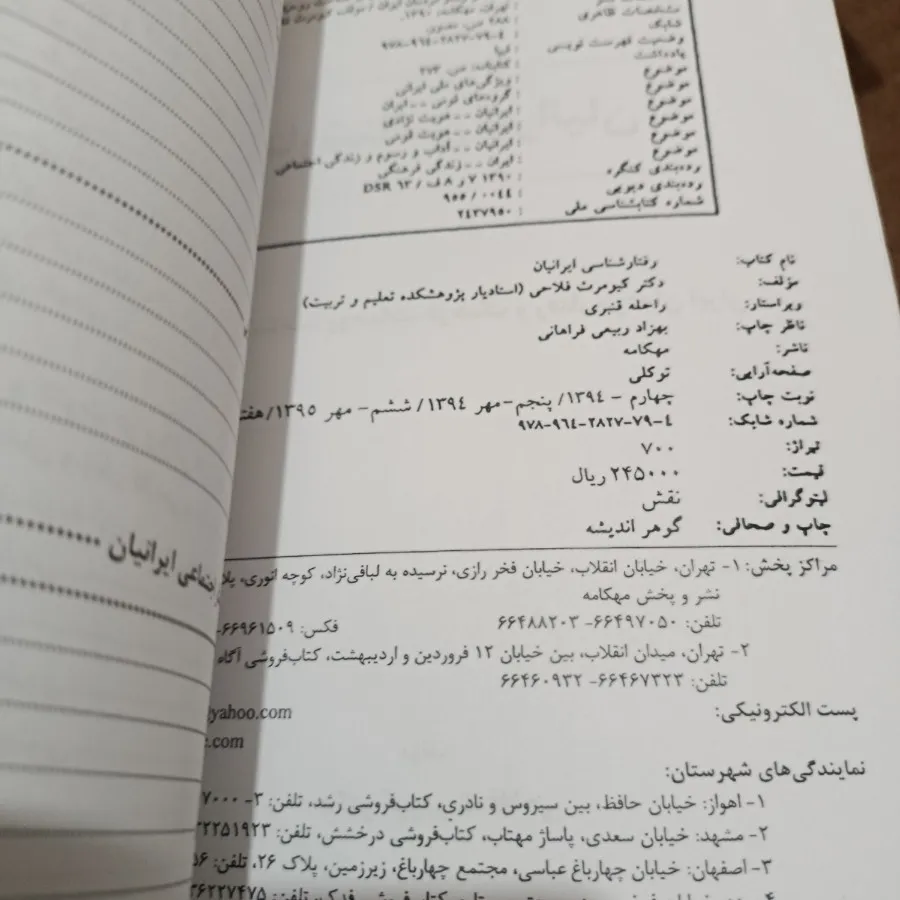 مشخصات ظاهری : ۲۸۸ ص. مصور.
شابک : ۹۷۸-۹۶۴-۲۸۲۷-۷۹-۴
وضعیت فهرست نویسی : فیپا
یادداشت : کتابنامه: ص. ۲۷۳
موضوع : ویژگی‌های ملی ایرانی
موضوع : گروه‌های قومی -- ایران
موضوع : ایرانیان -- هویت نژادی
موضوع : ایرانیان -- هویت قومی
موضوع : ایرانیان -- آداب و رسوم و زندگی اجتماعی
موضوع : ایران -- زندگی فرهنگی
رده‌بندی کنگره : DSR ۶۳ / ف ۸ ر ۷ ۱۳۹۰
رده‌بندی دیویی : ۹۵۵ / ۰۰۴۴
شماره کتابشناسی ملی : ۲۴۳۷۹۵۰
نام کتاب: رفتارشناسی ایرانیان
مؤلف: دکتر کیومرث فلاحی (استادیار پژوهشکده تعلیم و تربیت)
ویراستار: راحله قنبری
ناظر چاپ: بهزاد ربیعی فراهانی
ناشر: مهکامه
صفحه‌آرایی: توکلی
نوبت چاپ: چهارم - ۱۳۹۴/ پنجم-مهر ۱۳۹۴/ ششم- مهر ۱۳۹۵/
شماره شابک: ۹۷۸-۹۶۴-۲۸۲۷-۷۹-۴
تیراژ: ۷۰۰
قیمت: ۲۴۵۰۰۰ ریال
لیتوگرافی: نقش
چاپ و صحافی: گوهر اندیشه
مراکز پخش: ۱- تهران، خیابان انقلاب، خیابان فخر رازی، نرسیده به لبافی‌نژاد، کوچه انوری،
نشر و پخش مهکامه
تلفن: ۶۶۴۹۷۰۵۰- ۶۶۴۸۸۲۰۳ فکس: ۶۶۹۶۱۵۰۹-
۲- تهران، میدان انقلاب، بین خیابان ۱۲ فروردین و اردیبهشت، کتاب‌فروشی آگاه
تلفن: ۶۶۴۶۷۳۲۳- ۶۶۴۶۰۹۳۲
پست الکترونیکی: yahoo.com
.com
نمایندگی‌های شهرستان:
۱- اهواز: خیابان حافظ، بین سیروس و نادری، کتاب‌فروشی رشد، تلفن: ۳-
۲- مشهد: خیابان سعدی، پاساژ مهتاب، کتاب‌فروشی درخشش، تلفن:
۳- اصفهان: خیابان چهارباغ عباسی، مجتمع چهارباغ، زیرزمین، پلاک ۲۶، تلفن:
ایرانیان